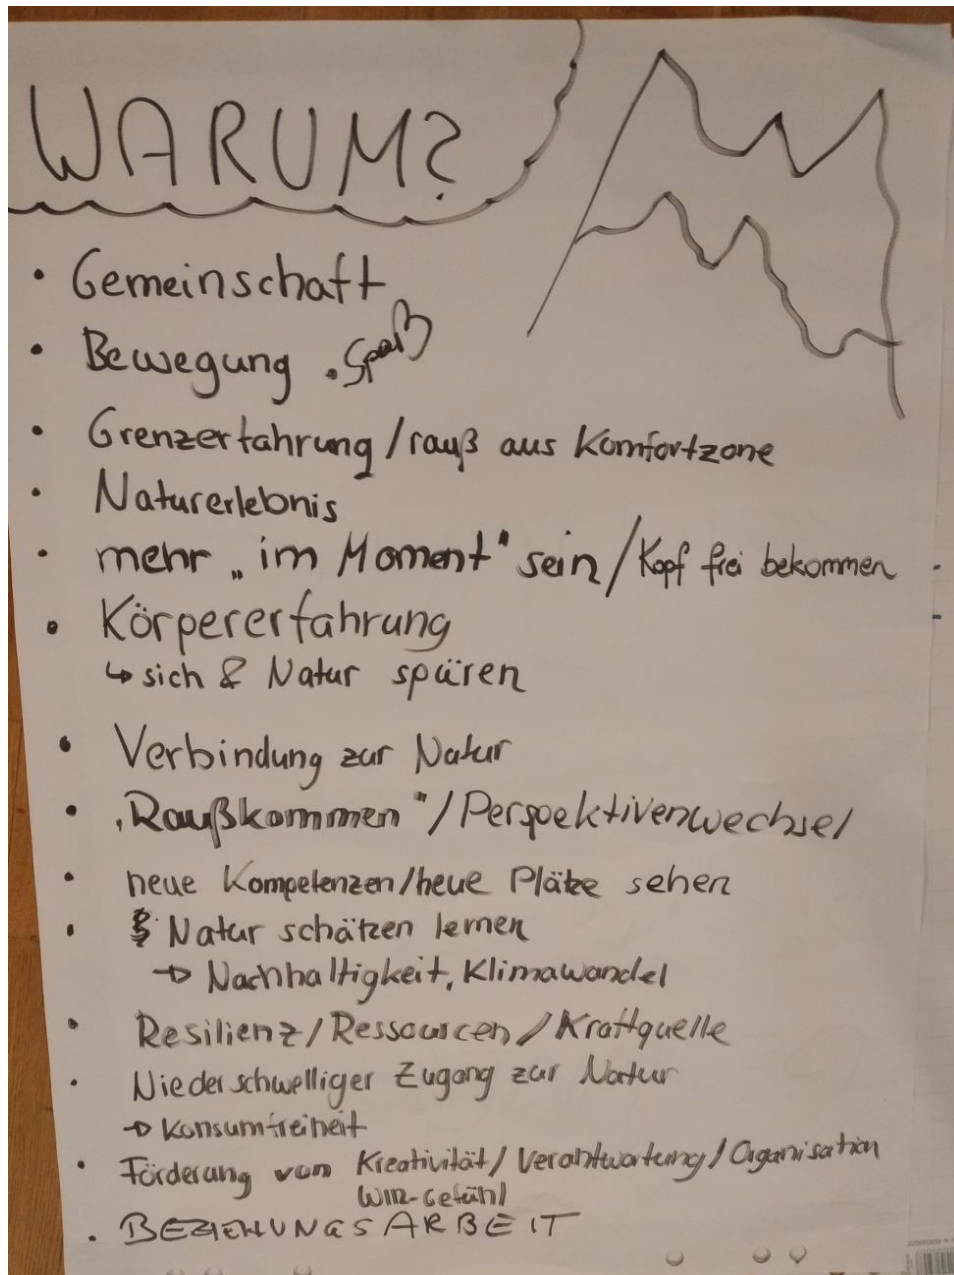 WARUM?
• Gemeinschaft
• Bewegung • Spaß
• Grenzerfahrung / rauß aus Komfortzone
• Naturerlebnis
• mehr „im Moment" sein / Kopf frei bekommen
• Körpererfahrung
↳ sich & Natur spüren
• Verbindung zur Natur
• „Raußkommen" / Perspektivenwechsel
• neue Kompetenzen / neue Plätze sehen
• Natur schätzen lernen
→ Nachhaltigkeit, Klimawandel
• Resilienz / Ressourcen / Kraftquelle
• Niederschwelliger Zugang zur Natur
→ Konsumfreiheit
• Förderung von Kreativität / Verantwortung / Organisation
WIR-Gefühl
• BEZIEHUNGSARBEIT